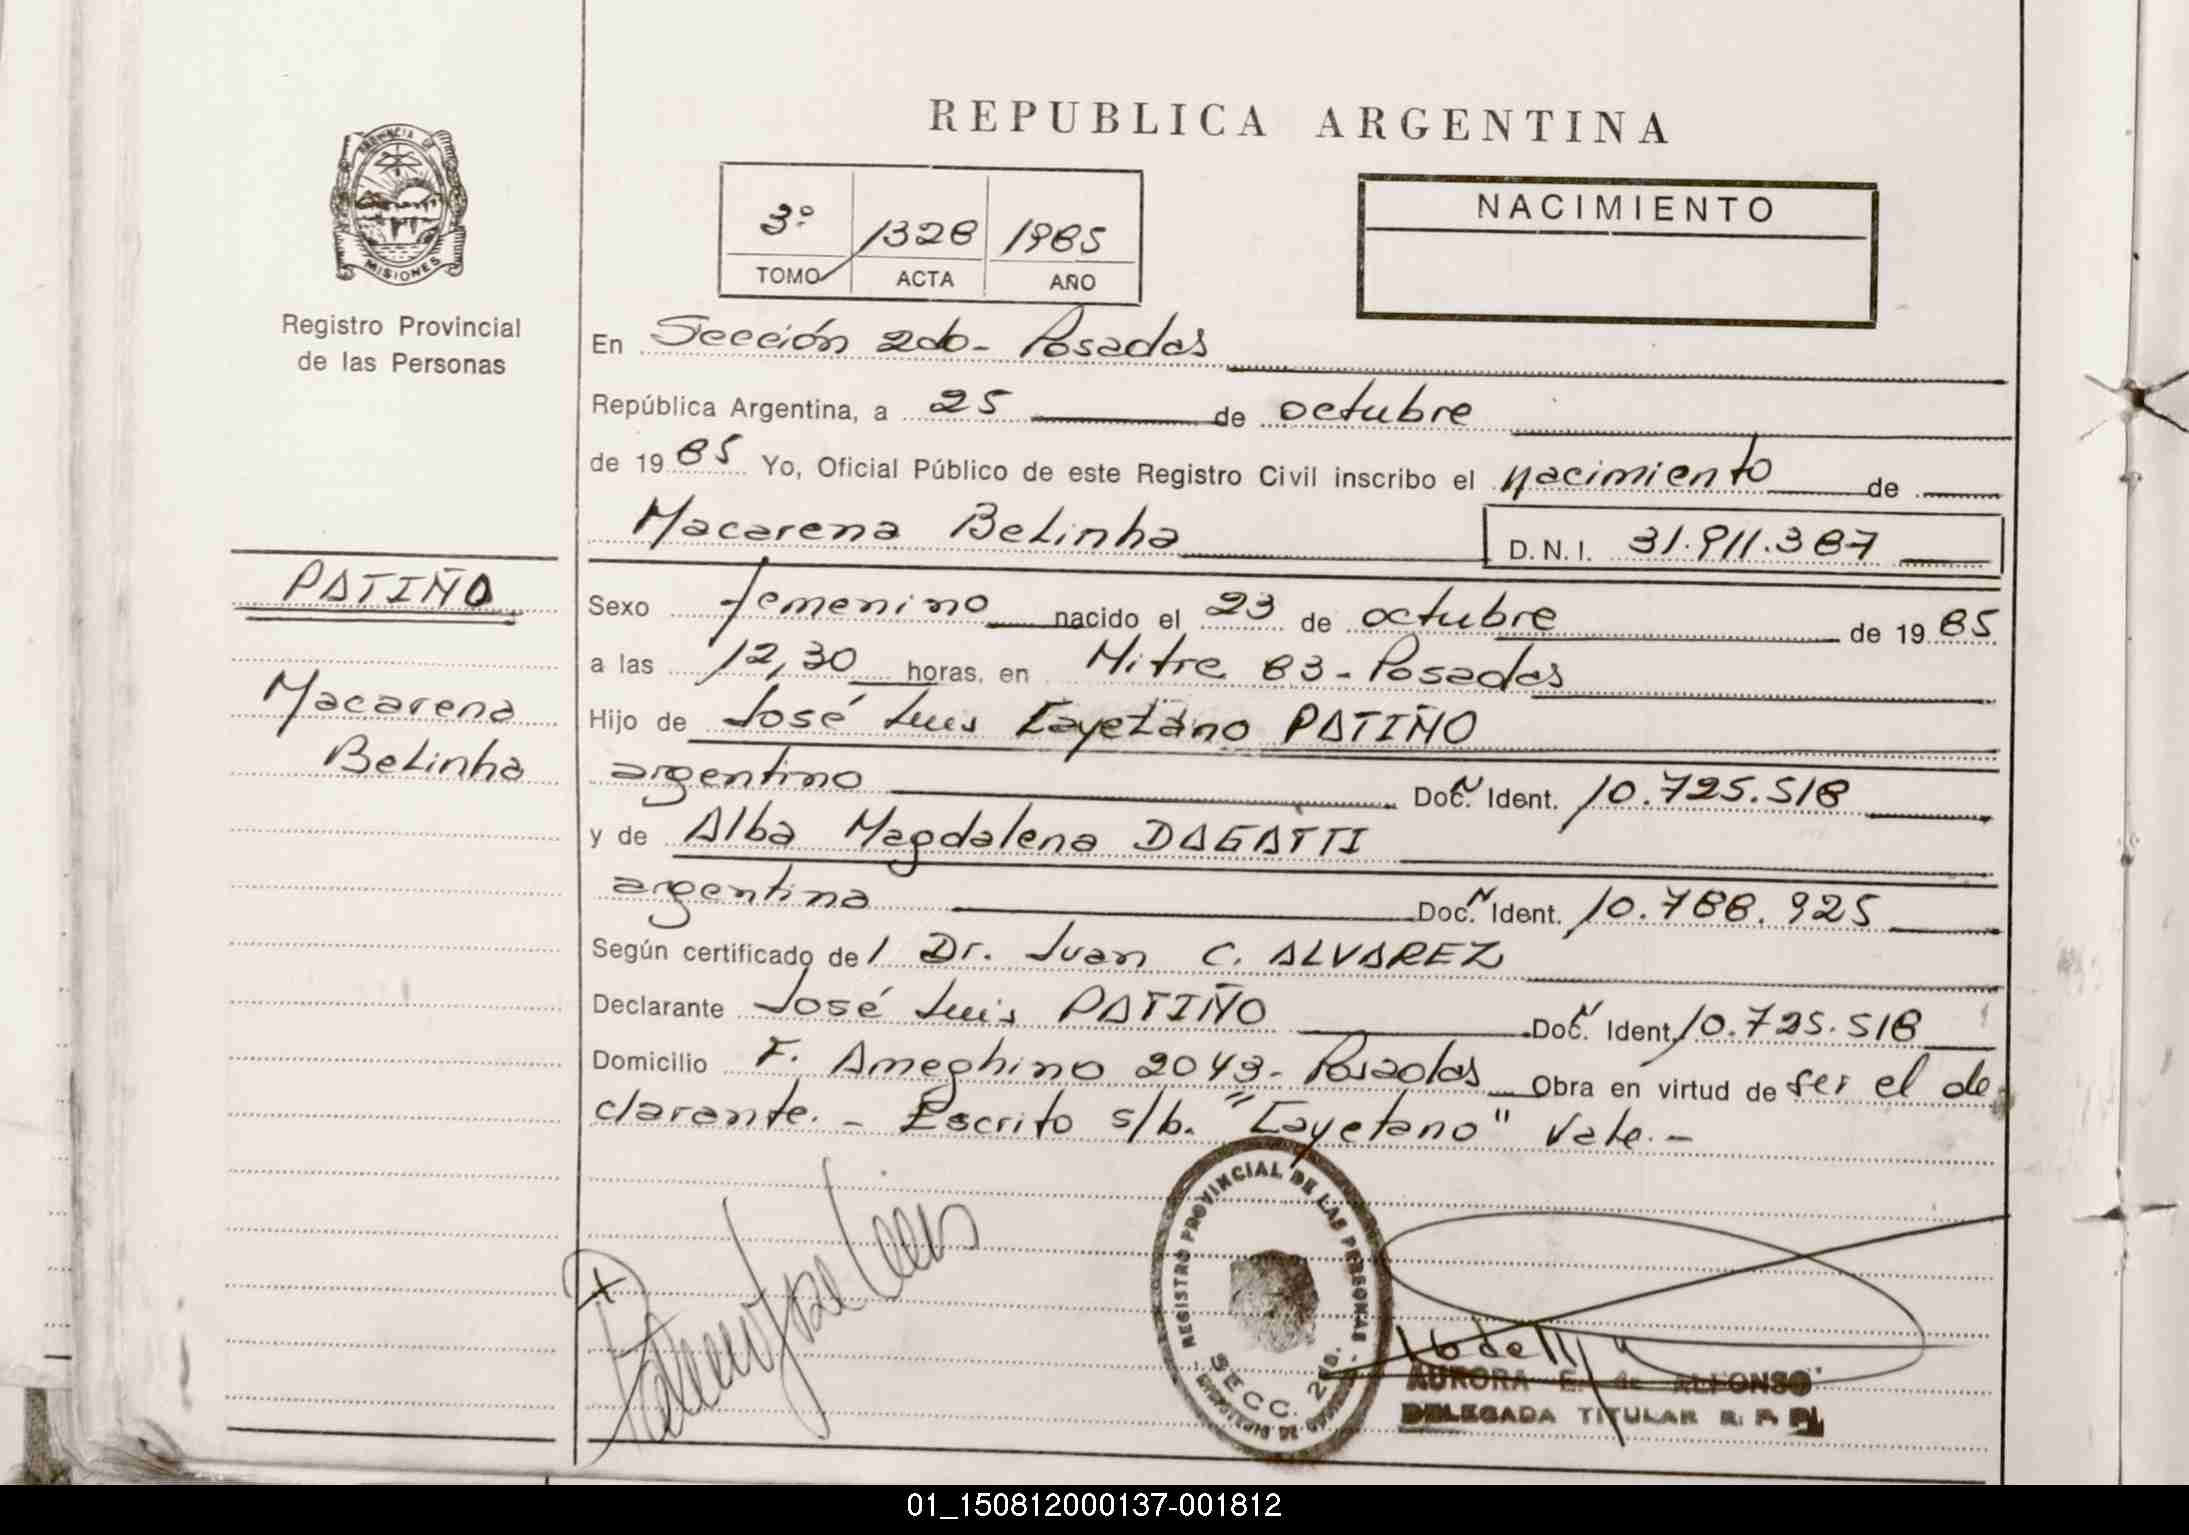 REPUBLICA ARGENTINA
PROVINCIA DE
MISIONES
Registro Provincial
de las Personas
3º 1328 1985
TOMO ACTA AÑO
NACIMIENTO
En Sección 2da- Posadas
República Argentina, a 25 de octubre
de 1985 Yo, Oficial Público de este Registro Civil inscribo el nacimiento de
Macarena Belinha D. N. I. 31.911.387
PATIÑO
Macarena
Belinha
Sexo femenino nacido el 23 de octubre de 1985
a las 12,30 horas, en Mitre 83 - Posadas
Hijo de José Luis Cayetano PATIÑO
argentino Doc. Ident. 10.725.518
y de Alba Magdalena DAGATTI
argentina Doc. Ident. 10.788.925
Según certificado del Dr. Juan C. ALVAREZ
Declarante José Luis PATIÑO Doc. Ident. 10.725.518
Domicilio F. Ameghino 2043- Posadas Obra en virtud de ser el de
clarante. - Escrito s/b. "Cayetano" Vale. -
REGISTRO PROVINCIAL DE LAS PERSONAS
SECC. 2da.
AURORA E. de ALFONSO
DELEGADA TITULAR R. P. P.
01_150812000137-001812